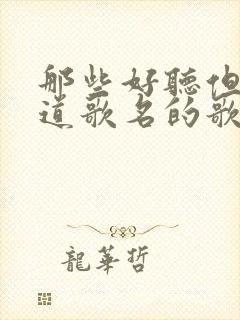 那些好聽但
道歌名的歌
龍華哲